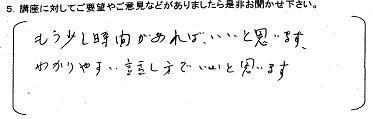 5. 講座に対してご要望やご意見などがありましたら是非お聞かせ下さい。
もう少し時間があれば、いいと思います、
わかりやすい話し方でいいと思います